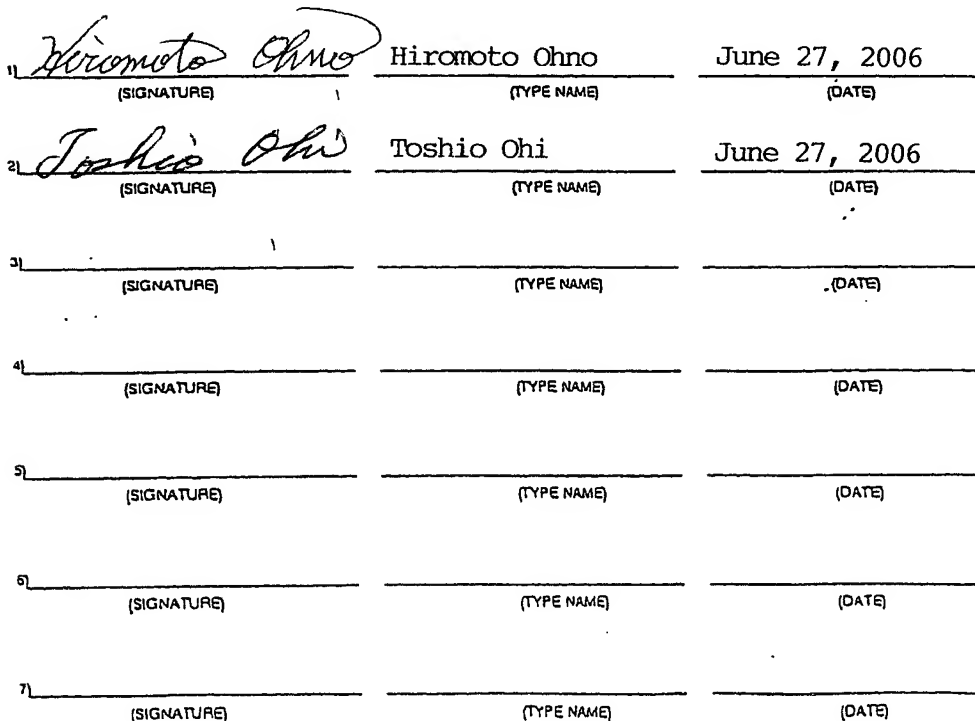 1) Hiromoto Ohno Hiromoto Ohno June 27, 2006
(SIGNATURE) (TYPE NAME) (DATE)
2) Toshio Ohi Toshio Ohi June 27, 2006
(SIGNATURE) (TYPE NAME) (DATE)
3)
(SIGNATURE) (TYPE NAME) (DATE)
4)
(SIGNATURE) (TYPE NAME) (DATE)
5)
(SIGNATURE) (TYPE NAME) (DATE)
6)
(SIGNATURE) (TYPE NAME) (DATE)
7)
(SIGNATURE) (TYPE NAME) (DATE)